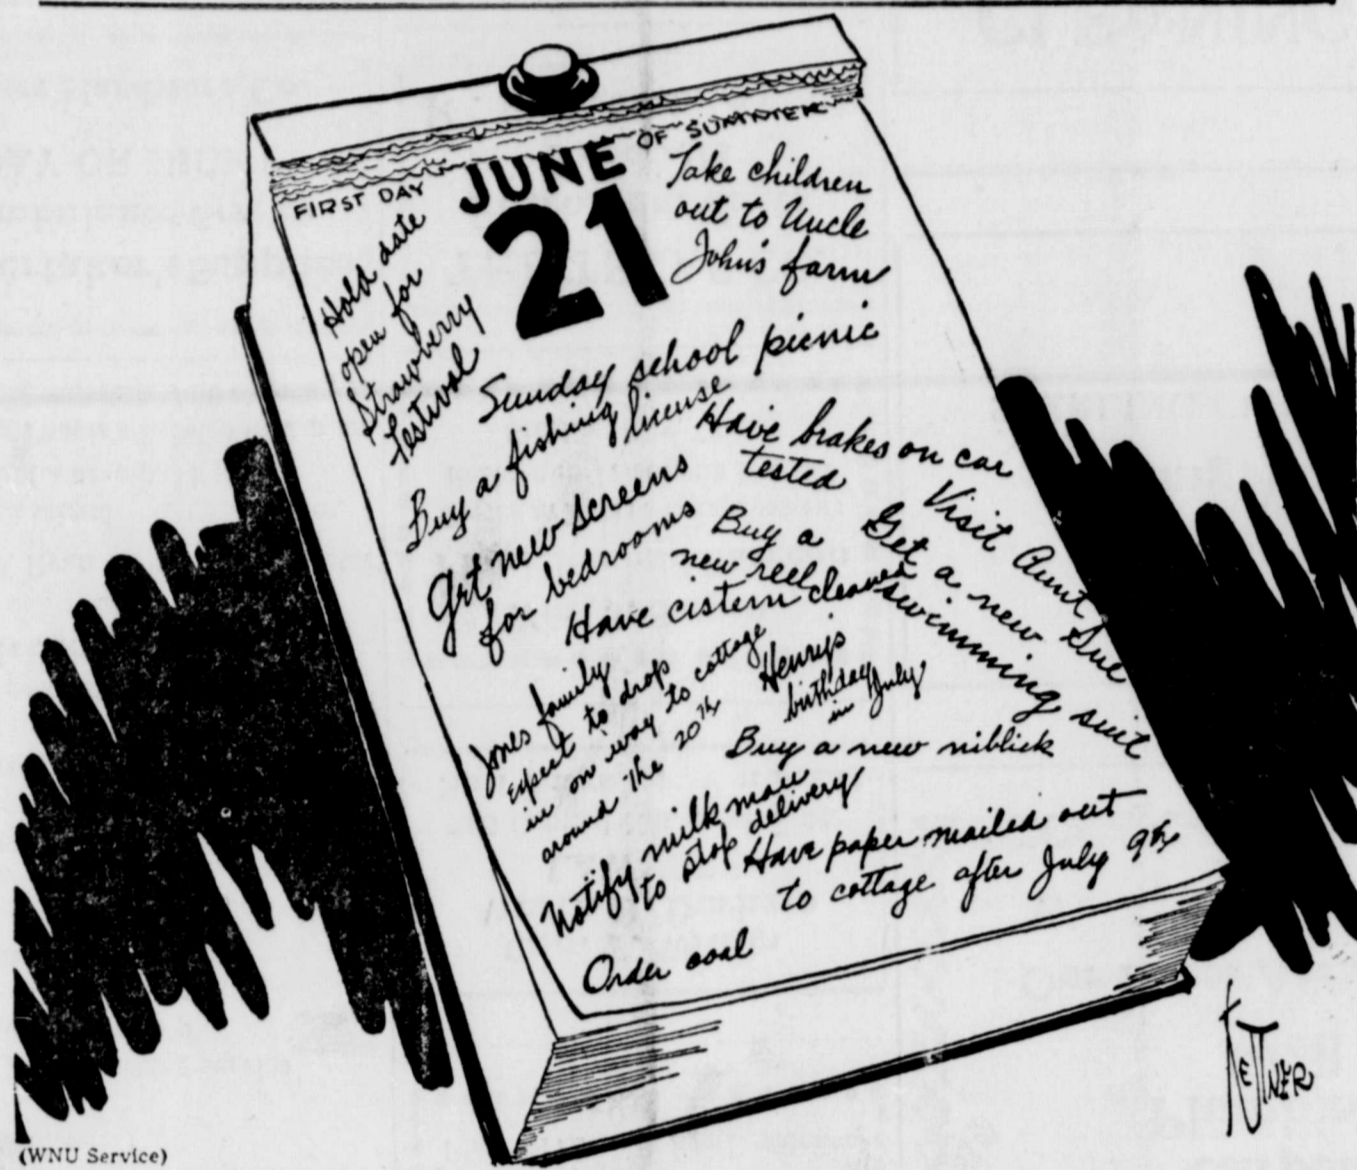 FIRST DAY OF SUMMER
JUNE
21
Hold date
open for
Strawberry
Festival
Take children
out to Uncle
John's farm
Sunday school picnic
Buy a fishing license
Have brakes on car
tested
Get new screens
for bedrooms
Visit Aunt Sue
Buy a
new reel
Get a new
swimming suit
Have cistern cleaned
Jones family
expect to drop
in on way to cottage
around the 20th
Henry's
birthday
in July
Buy a new niblick
Notify milk man
to stop delivery
Have paper mailed out
to cottage after July 9th
Order coal
(WNU Service)